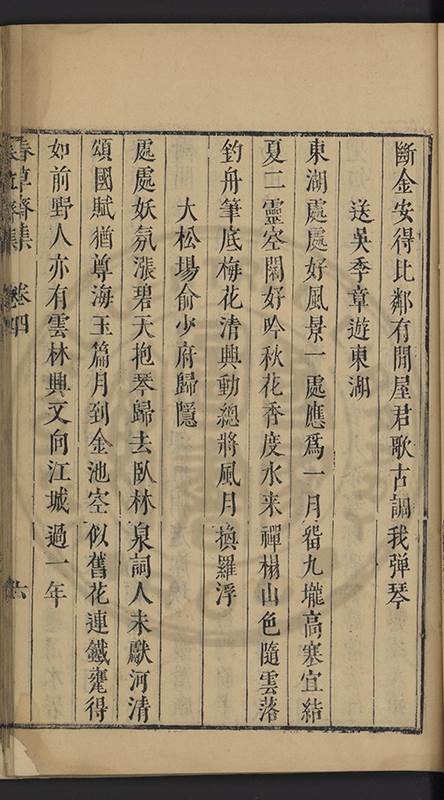 斷金安得比鄰有閒屋君歌古調我彈琴
送吳季章遊東湖
東湖處處好風景一處應爲一月畱九壠高塞宜結
夏二靈空闊好吟秋花香度水来禪榻山色隨雲落
釣舟筆底梅花清興動總將風月換羅浮
大松場俞少府歸隱
處處妖氛漲碧天抱琴歸去臥林泉詞人未獻河清
頌國賦猶尊海玉篇月到金池空似舊花連鐵甕得
如前野人亦有雲林興又向江城過一年
春草齋集 卷四 六